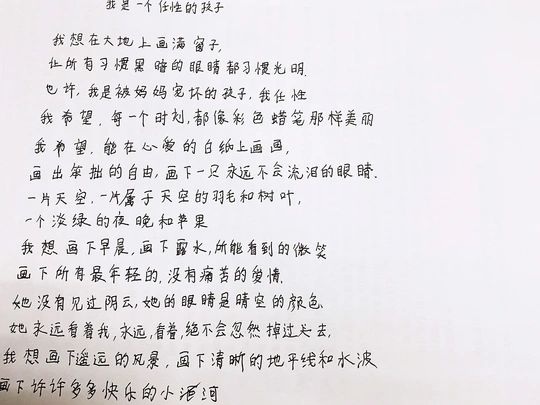 我是一个任性的孩子
我想在大地上画满窗子,
让所有习惯黑暗的眼睛都习惯光明.
也许,我是被妈妈宠坏的孩子,我任性
我希望,每一个时刻,都像彩色蜡笔那样美丽
我希望,能在心爱的白纸上画画,
画出笨拙的自由,画下一只永远不会流泪的眼睛.
一片天空,一片属于天空的羽毛和树叶,
一个淡绿的夜晚和苹果
我想画下早晨,画下露水,所能看到的微笑
画下所有最年轻的,没有痛苦的爱情.
她没有见过阴云,她的眼睛是晴空的颜色
她永远看着我,永远,看着,绝不会忽然掉过头去.
我想画下遥远的风景,画下清晰的地平线和水波
画下许许多多快乐的小河